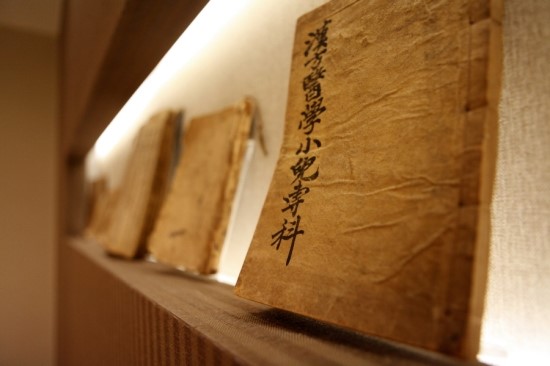 漢方醫學小兒專科